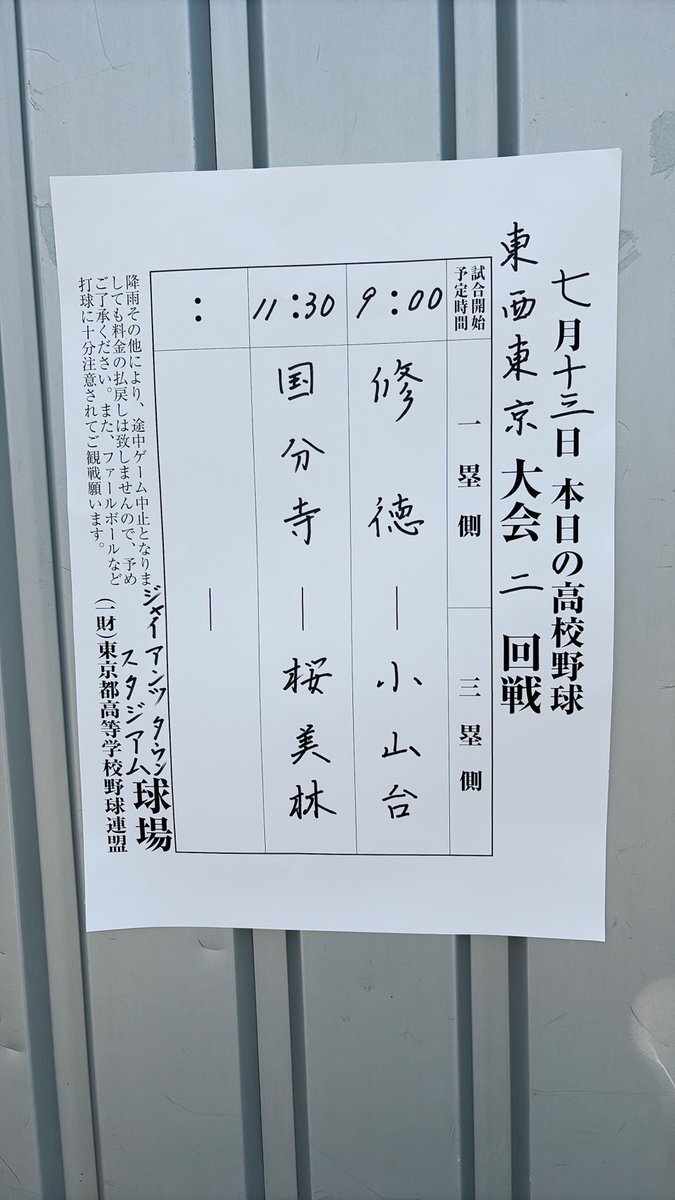 七月十三日 本日の高校野球
東西東京大会 二回戦
試合開始
予定時間
一塁側
三塁側
9:00 修徳 ― 小山台
11:30 国分寺 ― 桜美林
: ―
ジャイアンツタウン
スタジアム球場
(一財)東京都高等学校野球連盟
降雨その他により、途中ゲーム中止となりま
しても料金の払戻しは致しませんので、予め
ご了承ください。また、ファールボールなど
打球に十分注意されてご観戦願います。